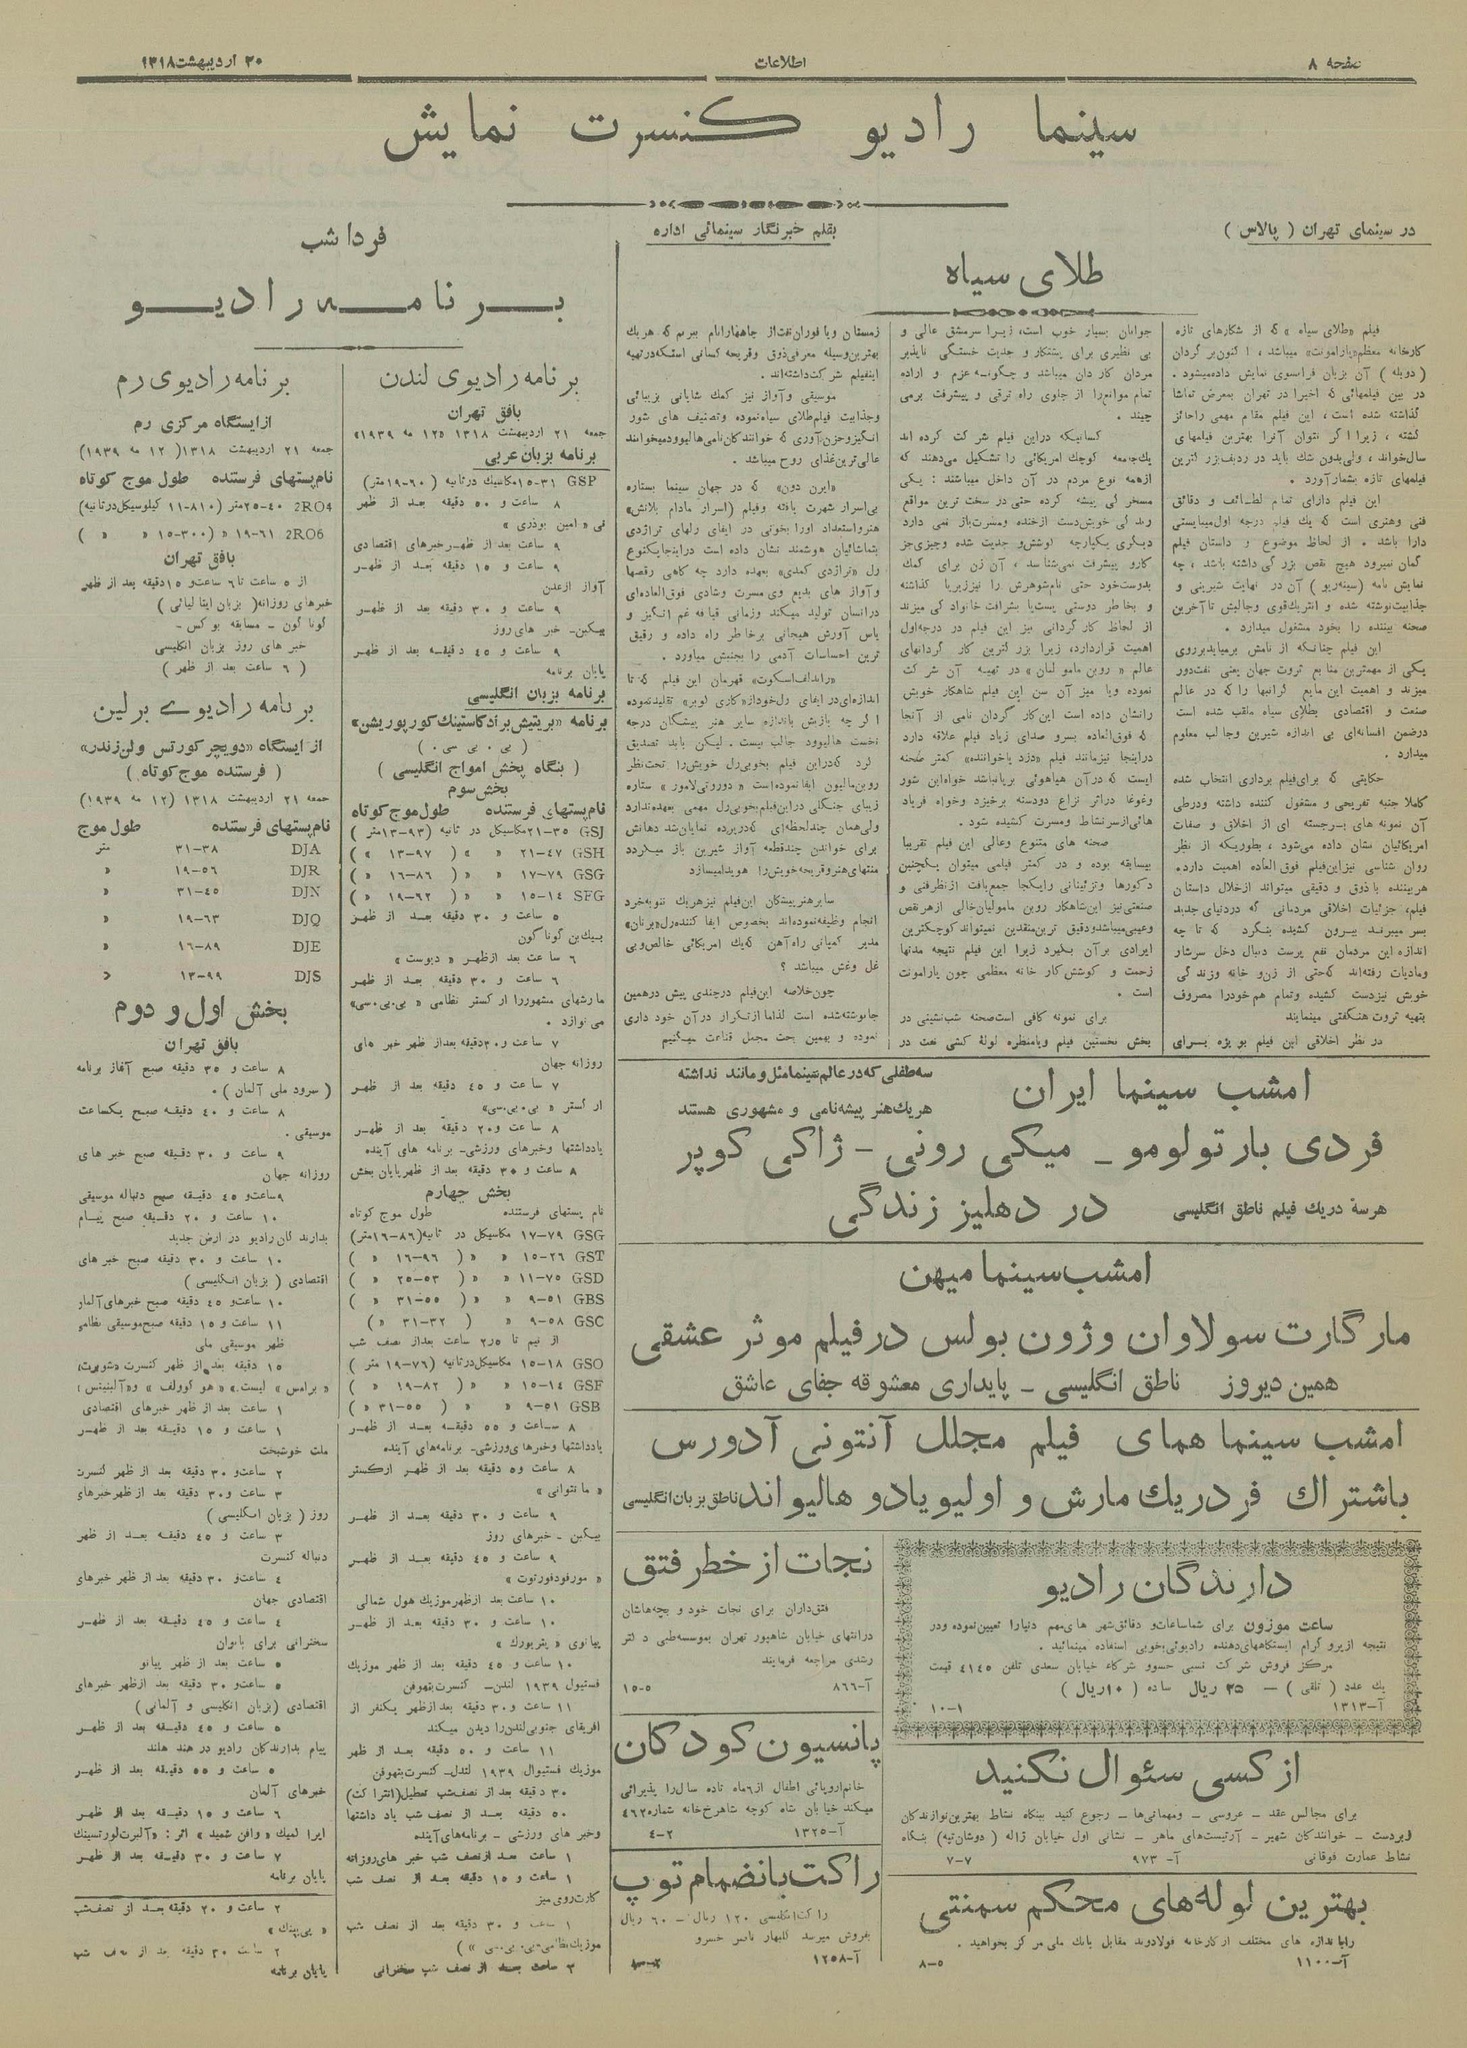 صفحه ۸
اطلاعات
۲۰ اردیبهشت ۱۳۱۸
سینما رادیو کنسرت نمایش
در سینمای تهران ( پالاس )
بقلم خبرنگار سینمائی اداره
طلای سیاه
فیلم «طلای سیاه » که از شکارهای تازه
کارخانه معظم«پارامونت» میباشد ، اکنون بر گردان
( دوبله ) آن بزبان فرانسوی نمایش داده میشود .
در بین فیلمهائی که اخیرا در تهران بمعرض تماشا
گذاشته شده است ، این فیلم مقام مهمی را حائز
گشته ، زیرا اگر نتوان آنرا بهترین فیلمهای
سال خواند ، ولی بدون شك باید در ردیف بزرگترین
فیلمهای تازه بشمار آورد .
این فیلم دارای تمام لطائف و دقائق
فنی وهنری است که یك فیلم درجه اول میبایستی
دارا باشد . از لحاظ موضوع و داستان فیلم
گمان نمیرود هیچ نقص بزرگی داشته باشد ، چه
نمایش نامه (سینه ریو) آن در نهایت شیرینی و
جذابیت نوشته شده و انتریك قوی وجالبش تا آخرین
صحنه بیننده را بخود مشغول میدارد .
این فیلم چنانکه از نامش برمیاید بر روی
یکی از مهمترین منابع ثروت جهان یعنی نفت دور
میزند و اهمیت این مایع گرانبها را که در عالم
صنعت و اقتصادی بطلای سیاه ملقب شده است
درضمن افسانه‌ای بی اندازه شیرین وجالب معلوم
میدارد .
حکایتی که برای فیلم برداری انتخاب شده
کاملا جنبه تفریحی و مشغول کننده داشته ودرطی
آن نمونه های برجسته ای از اخلاق و صفات
امریکائیان نشان داده می‌شود ، بطوریکه از نظر
روان شناسی نیز این فیلم فوق العاده اهمیت دارد.
هر بیننده با ذوق و دقیقی میتواند ازخلال داستان
فیلم، جزئیات اخلاقی مردمانی که در دنیای جدید
بسر میبرند بیرون کشیده بنگرد که تا چه
اندازه این مردمان نفع پرست دنبال دخل سرشار
ومادیات رفته‌اند که حتی از زن و خانه وزندگی
خویش نیز دست کشیده وتمام هم خود را مصروف
بتهیه ثروت هنگفتی مینمایند
در نظر اخلاقی این فیلم بویژه برای
جوانان بسیار خوب است، زیرا سرمشق عالی و
بی نظیری برای پشتکار و جدیت خستگی ناپذیر
مردان کاردان میباشد و چگونه عزم و اراده
تمام موانع را از جلوی راه ترقی و پیشرفت برمی
چیند .
کسانیکه دراین فیلم شرکت کرده اند
یك جامعه کوچك امریکائی را تشکیل می‌دهند که
ازهمه نوع مردم در آن داخل میباشند : یکی
مسخرگی پیشه کرده حتی در سخت ترین مواقع
زندگی خویش دست ازخنده ومسرت باز نمی دارد
دیگری یکپارچه کوشش و جدیت شده وچیزی جز
کار و پیشرفت نمی‌شناسد ، آن زن برای کمك
بدوست خود حتی نام شوهرش را نیز زیر پا گذاشته
و بخاطر دوستی پشت پا بشرافت خانواد گی میزند
از لحاظ کارگردانی نیز این فیلم در درجه اول
اهمیت قرار دارد، زیرا بزرگترین کار گردانهای
عالم « روبن مامولیان » در تهیه آن شرکت
نموده وبا میزآن سن این فیلم شاهکار خویش
را نشان داده است این کار گردان نامی از آنجا
که فوق العاده بسر و صدای زیاد فیلم علاقه دارد
دراینجا نیز مانند فیلم «دزد یا خواننده» کمتر صحنه
ایست که در آن هیاهوئی بر پا نباشد خواه این شور
وغوغا دراثر نزاع دودسته برخیزد وخواه فریاد
هائی از سر نشاط ومسرت کشیده شود .
صحنه های متنوع وعالی این فیلم تقریبا
بیسابقه بوده و در کمتر فیلمی میتوان یکچنین
دکورها وتزئیناتی را یکجا جمع یافت از نظر فنی و
صنعتی نیز این شاهکار روبن مامولیان خالی از هر نقص
وعیبی میباشد ودقیق ترین منقدین نمیتواند کوچکترین
ایرادی بر آن بگیرد زیرا این فیلم نتیجه مدتها
زحمت و کوشش کار خانه معظمی چون پارامونت
است .
برای نمونه کافی است صحنه شب نشینی در
بخش نخستین فیلم ویا منظره لوله کشی نفت در
زمستان و یا فوران نفت از چاهها را نام ببریم که هر یك
بهترین وسیله معرفی ذوق و قریحه کسانی استکه در تهیه
اینفیلم شرکت داشته‌اند .
موسیقی و آواز نیز کمك شایانی بزیبائی
وجذابیت فیلم طلای سیاه نموده وتصنیف های شور
انگیز وحزن آوری که خوانندگان نامی هالیوود میخوانند
عالی ترین غذای روح میباشد .
«ایرن دون» که در جهان سینما بستاره
بی‌اسرار شهرت یافته وفیلم (اسرار مادام بلانش)
هنر و استعداد او را بخوبی در ایفای رلهای تراژدی
بتماشائیان هوشمند نشان داده است دراینجا یکنوع
رل «تراژدی کمدی» بعهده دارد چه گاهی رقصها
وآواز های بدیع وی مسرت وشادی فوق العاده‌ای
درانسان تولید میکند وزمانی قیافه غم انگیز و
یاس آورش هیجانی برخاطر راه داده و رقیق
ترین احساسات آدمی را بجنبش میاورد .
«راندلف اسکوت» قهرمان این فیلم که تا
اندازه‌ای در ایفای رل خود از «گاری کوپر» تقلید نموده
اگر چه بازیش باندازه سایر هنر پیشگان درجه
نخست هالیوود جالب نیست . لیکن باید تصدیق
کرد که در این فیلم بخوبی رل خویش را تحت نظر
روبن مامولیان ایفا نموده است « دوروتی لامور » ستاره
زیبای جنگلی در این فیلم بخوبی رل مهمی بعهده ندارد
ولی همان چند لحظه‌ای که در پرده نمایان شد دهانش
برای خواندن چند قطعه آواز شیرین باز میگردد
منتهای هنر و قریحه خویش را هویدا میسازد
سایر هنرپیشگان این فیلم نیز هریك بنوبه خرد
انجام وظیفه نموده‌اند بخصوص ایفا کننده رل «برنان»
مدیر کمپانی راه آهن که یك امریکائی خالص و بی
غل وغش میباشد ؟
چون خلاصه این فیلم در چندی پیش در همین
جا نوشته شده است لذا ما از تکرار در آن خود داری
نموده و بهمین بحث مجمل قناعت میکنیم
امشب سینما ایران
سه طفلی که در عالم سینما مثل و مانند نداشته
هریك هنرپیشه نامی و مشهوری هستند
فردی بارتولومو _ میکی رونی - ژاکی کوپر
هرسه دریك فیلم ناطق انگلیسی
در دهلیز زندگی
امشب سینما میهن
مارگارت سولاوان وژون بولس در فیلم موثر عشقی
همین دیروز ناطق انگلیسی _ پایداری معشوقه جفای عاشق
امشب سینما همای فیلم مجلل آنتونی آدورس
باشتراك فردریك مارش و اولیویادو هالیواند ناطق بزبان انگلیسی
دارندگان رادیو
ساعت موزون برای شما ساعات و دقائق شهر های مهم دنیا را تعیین نموده ودر
نتیجه از پروگرام ایستگاههای دهنده رادیوئی بخوبی استفاده مینمائید .
مرکز فروش شرکت نسبی حسو و شرکاء خیابان سعدی تلفن ۴۱۴۵ قیمت
یك عدد ( تلقی ) — ۲۵ ریال ساده ( ۱۰ ریال )
آ-۱۳۱۳ ۱-۱۰
از کسی سئوال نکنید
برای مجالس عقد - عروسی - ومهمانی‌ها - رجوع کنید ببنگاه نشاط بهترین نوازندگان
زبردست - خوانندگان شهیر - آرتیست‌های ماهر - نشانی اول خیابان ژاله ( دوشان تپه) بنگاه
نشاط عمارت فوقانی آ- ۹۷۳ ۷-۷
بهترین لوله‌های محکم سمنتی
را با اندازه های مختلف از کارخانه فولادوند مقابل بانك ملی مرکز بخواهید .
آ-۱۱۰۰ ۵-۸
نجات از خطر فتق
فتق‌داران برای نجات خود و بچه‌هاشان
درانتهای خیابان شاهپور تهران بموسسه طبی دکتر
رشدی مراجعه فرمایند
آ-۸۶۶ ۵-۱۵
پانسیون کودکان
خانم اروپائی اطفال از ۶ ماه تا ده سال را پذیرائی
میکند خیابان شاه کوچه شاهرخ خانه شماره ۴۶۲
آ-۱۳۲۵ ۲-۴
راکت بانضمام توپ
راکت انگلیسی ۱۲۰ ریال — ۶۰ ریال
بفروش میرسد گلبهار ناصر خسرو
آ-۱۲۵۸
فردا شب
برنامه رادیو
برنامه رادیوی لندن
بافق تهران
جمعه ۲۱ اردیبهشت ۱۳۱۸ «۱۲ مه ۱۹۳۹»
برنامه بزبان عربی
GSP ۱۵-۳۱ مکاسیك در ثانیه ( ۶۰-۱۹ متر)
۸ ساعت و ۵۰ دقیقه بعد از ظهر
نی « امین بوذری »
۹ ساعت بعد از ظهر خبرهای اقتصادی
۹ ساعت و ۱۵ دقیقه بعد از ظهر
آواز از عدن
۹ ساعت و ۳۰ دقیقه بعد از ظهر
بیگبن- خبر های روز
۹ ساعت و ۴۵ دقیقه بعد از ظهر
پایان برنامه
برنامه بزبان انگلیسی
برنامه «بریتیش براد کاستینك کورپوریشن»
( بی . بی سی . )
( بنگاه پخش امواج انگلیسی )
بخش سوم
نام پستهای فرستنده طول موج کوتاه
GSJ ۲۱-۳۵ مکاسیکل در ثانیه (۹۳-۱۳ متر )
GSH ۲۱-۴۷ « « ( ۹۷-۱۳ « )
GSG ۱۷-۷۹ « « ( ۸۶-۱۶ « )
SFG ۱۵-۱۴ « « ( ۶۲-۱۹ « )
۵ ساعت و ۳۰ دقیقه بعد از ظهر
بیك بن گوناگون
۶ ساعت بعد از ظهر « دبوست »
۶ ساعت و ۳۰ دقیقه بعد از ظهر
مارشهای مشهور را ارکستر نظامی «بی.بی.سی»
می نوازد .
۷ ساعت و ۳۰ دقیقه بعد از ظهر خبر های
روزانه جهان
۷ ساعت و ۴۵ دقیقه بعد از ظهر
ارکستر « بی . بی.سی»
۸ ساعت و ۲۰ دقیقه بعد از ظهر
یادداشتها وخبرهای ورزشی- برنامه های آینده
۸ ساعت و ۳۰ دقیقه بعد از ظهر پایان بخش
بخش چهارم
نام پستهای فرستنده طول موج کوتاه
GSG ۱۷-۷۹ مکاسیکل در ثانیه (۸۶-۱۶ متر)
GST ۱۵-۲۶ « « ( ۹۶-۱۶ « )
GSD ۱۱-۷۵ « « ( ۵۳-۲۵ « )
GBS ۹-۵۱ « « ( ۵۵-۳۱ « )
GSC ۹-۵۸ « « ( ۳۲-۳۱ « )
از نیم تا ۲٫۵ ساعت بعد از نصف شب
GSO ۱۵-۱۸ مکاسیکل در ثانیه (۷۶-۱۹ متر )
GSF ۱۵-۱۴ « « ( ۸۲-۱۹ « )
GSB ۹-۵۱ « « ( ۵۵-۳۱ « )
۸ ساعت و ۵۵ دقیقه بعد از ظهر
یادداشتها وخبرهای ورزشی- برنامه‌های آینده
۸ ساعت و ۵ دقیقه بعد از ظهر ارکستر
« مانتوانی »
۹ ساعت و ۳۰ دقیقه بعد از ظهر
بیگبن - خبرهای روز
۹ ساعت و ۴۵ دقیقه بعد از ظهر
« مورفودفورتوت »
۱۰ ساعت بعد از ظهر موزیك هول شمالی
۱۰ ساعت و ۳۰ دقیقه بعد از ظهر
پیانوی « پتر یورك »
۱۰ ساعت و ۴۵ دقیقه بعد از ظهر موزیك
فستیول ۱۹۳۹ لندن- کنسرت بتهوفن
۱۱ ساعت و ۳۰ دقیقه بعد از ظهر یکنفر از
افریقای جنوبی لندن را دیدن میکند
۱۱ ساعت و ۵۰ دقیقه بعد از ظهر
موزیك فستیوال ۱۹۳۹ لندن- کنسرت بتهوفن
۳۰ دقیقه بعد از نصف شب تعطیل (انترا کت)
۵۰ دقیقه بعد از نصف شب یاد داشتها
وخبر های ورزشی - برنامه‌های آینده
۱ ساعت بعد از نصف شب خبر های روزانه
۱ ساعت و ۱۵ دقیقه بعد از نصف شب
کارت روی میز
۱ ساعت و ۳۰ دقیقه بعد از نصف شب
موزیك نظامی «بی . بی.سی »
۲ ساعت بعد از نصف شب سخنرانی
برنامه رادیوی رم
از ایستگاه مرکزی رم
جمعه ۲۱ اردیبهشت ۱۳۱۸( ۱۲ مه ۱۹۳۹)
نام پستهای فرستنده طول موج کوتاه
2RO4 ۲۵-۴۰ متر (۸۱۰-۱۱ کیلوسیکل در ثانیه)
2RO6 ۱۹-۶۱ « (۳۰۰-۱۵ « « )
بافق تهران
از ۵ ساعت تا ۶ ساعت و ۱۵ دقیقه بعد از ظهر
خبرهای روزانه( بزبان ایتالیائی )
گونا گون - مسابقه بوکس -
خبر های روز بزبان انگلیسی
( ۶ ساعت بعد از ظهر )
برنامه رادیوے برلین
از ایستگاه «دویچر کورتس ولن زندر»
( فرستنده موج کوتاه )
جمعه ۲۱ اردیبهشت ۱۳۱۸ (۱۲ مه ۱۹۳۹ )
نام پستهای فرستنده طول موج
DJA ۳۱-۳۸ متر
DJR ۱۹-۵۶ «
DJN ۳۱-۴۵ «
DJQ ۱۹-۶۳ «
DJE ۱۶-۸۹ «
DJS ۱۳-۹۹ «
بخش اول و دوم
بافق تهران
۸ ساعت و ۳۵ دقیقه صبح آغاز برنامه
( سرود ملی آلمان ) .
۸ ساعت و ۴۰ دقیقه صبح یکساعت
موسیقی .
۹ ساعت و ۳۰ دقیقه صبح خبر های
روزانه جهان
۹ ساعت و ۴۵ دقیقه صبح دنباله موسیقی
۱۰ ساعت و ۲۰ دقیقه صبح پیام
بدارندگان رادیو در ارض جدید
۱۰ ساعت و ۳۰ دقیقه صبح خبر های
اقتصادی ( بزبان انگلیسی )
۱۰ ساعت و ۴۵ دقیقه صبح خبرهای آلمان
۱۱ ساعت و ۱۵ دقیقه صبح موسیقی نظامی
ظهر موسیقی ملی
۱۵ دقیقه بعد از ظهر کنسرت «شوبرت»
« برامس » لیست.« هو گوولف » و«آلبنیتس»
۱ ساعت بعد از ظهر خبرهای اقتصادی
۱ ساعت و ۱۵ دقیقه بعد از ظهر
ملت خوشبخت
۲ ساعت و ۳۰ دقیقه بعد از ظهر کنسرت
۳ ساعت و ۳۰ دقیقه بعد از ظهر خبرهای
روز ( بزبان انگلیسی )
۳ ساعت و ۴۵ دقیقه بعد از ظهر
دنباله کنسرت
۴ ساعت و ۳۰ دقیقه بعد از ظهر خبرهای
اقتصادی جهان
۴ ساعت و ۴۵ دقیقه بعد از ظهر
سخنرانی برای بانوان
۵ ساعت بعد از ظهر پیانو
۵ ساعت و ۳۰ دقیقه بعد از ظهر خبرهای
اقتصادی (بزبان انگلیسی و آلمانی )
۵ ساعت و ۴۵ دقیقه بعد از ظهر
پیام بدارندگان رادیو در هند هلند
۵ ساعت و ۵۵ دقیقه بعد از ظهر
خبرهای آلمان
۶ ساعت و ۱۵ دقیقه بعد از ظهر
اپرا کمیك « وافن شمید » اثر : «آلبرت لورتسینك
۷ ساعت و ۳۰ دقیقه بعد از ظهر
پایان برنامه
۲ ساعت و ۲۰ دقیقه بعد از نصف شب
« بی‌بینك »
۲ ساعت و ۳۰ دقیقه بعد از نصف شب
پایان برنامه